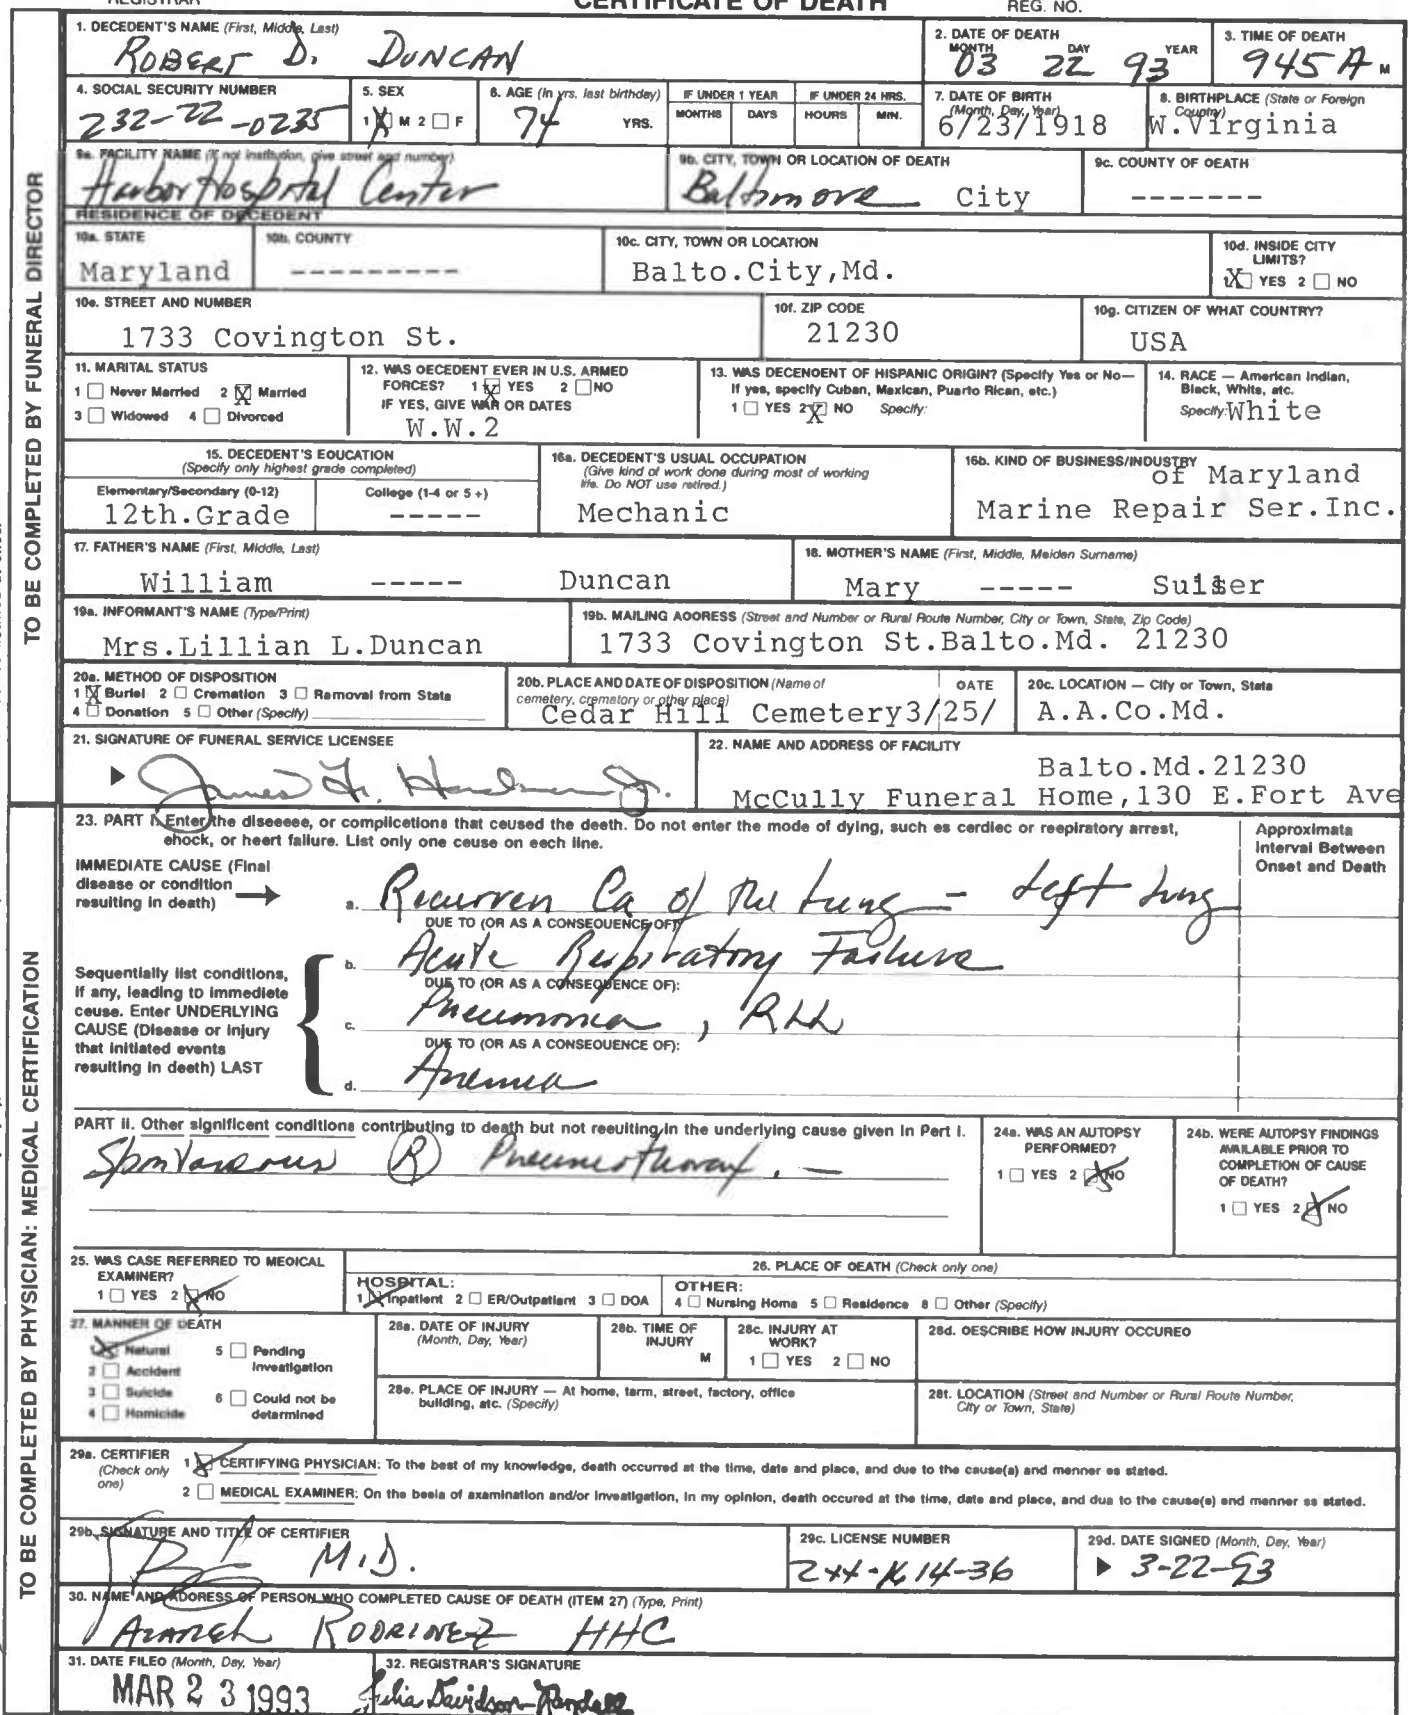 REGISTRAR CERTIFICATE OF DEATH REG. NO.
TO BE COMPLETED BY FUNERAL DIRECTOR
1. DECEDENT'S NAME (First, Middle, Last)
ROBERT D. DUNCAN
2. DATE OF DEATH
MONTH DAY YEAR
03 22 93
3. TIME OF DEATH
945 A M
4. SOCIAL SECURITY NUMBER
232-22-0235
5. SEX
1 X M 2 F
6. AGE (In yrs. last birthday)
74 YRS.
IF UNDER 1 YEAR
MONTHS DAYS
IF UNDER 24 HRS.
HOURS MIN.
7. DATE OF BIRTH
(Month, Day, Year)
6/23/1918
8. BIRTHPLACE (State or Foreign
Country)
W.Virginia
9a. FACILITY NAME (If not institution, give street and number)
Harbor Hospital Center
9b. CITY, TOWN OR LOCATION OF DEATH
Baltimore City
9c. COUNTY OF DEATH
-------
RESIDENCE OF DECEDENT
10a. STATE
Maryland
10b. COUNTY
---------
10c. CITY, TOWN OR LOCATION
Balto.City,Md.
10d. INSIDE CITY
LIMITS?
1 X YES 2 NO
10e. STREET AND NUMBER
1733 Covington St.
10f. ZIP CODE
21230
10g. CITIZEN OF WHAT COUNTRY?
USA
11. MARITAL STATUS
1 Never Married 2 X Married
3 Widowed 4 Divorced
12. WAS DECEDENT EVER IN U.S. ARMED
FORCES? 1 X YES 2 NO
IF YES, GIVE WAR OR DATES
W.W.2
13. WAS DECENDENT OF HISPANIC ORIGIN? (Specify Yes or No—
If yes, specify Cuban, Mexican, Puerto Rican, etc.)
1 YES 2 X NO Specify:
14. RACE — American Indian,
Black, White, etc.
Specify: White
15. DECEDENT'S EDUCATION
(Specify only highest grade completed)
Elementary/Secondary (0-12) College (1-4 or 5 +)
12th.Grade -----
16a. DECEDENT'S USUAL OCCUPATION
(Give kind of work done during most of working
life. Do NOT use retired.)
Mechanic
16b. KIND OF BUSINESS/INDUSTRY
of Maryland
Marine Repair Ser.Inc.
17. FATHER'S NAME (First, Middle, Last)
William ----- Duncan
18. MOTHER'S NAME (First, Middle, Maiden Surname)
Mary -----
19a. INFORMANT'S NAME (Type/Print)
Mrs.Lillian L.Duncan
19b. MAILING ADDRESS (Street and Number or Rural Route Number, City or Town, State, Zip Code)
1733 Covington St.Balto.Md. 21230
20a. METHOD OF DISPOSITION
1 X Burial 2 Cremation 3 Removal from State
4 Donation 5 Other (Specify)
20b. PLACE AND DATE OF DISPOSITION (Name of
cemetery, crematory or other place) DATE
Cedar Hill Cemetery3/25/
20c. LOCATION — City or Town, State
A.A.Co.Md.
21. SIGNATURE OF FUNERAL SERVICE LICENSEE
James Jr.
22. NAME AND ADDRESS OF FACILITY
Balto.Md.21230
McCully Funeral Home,130 E.Fort Ave
TO BE COMPLETED BY PHYSICIAN: MEDICAL CERTIFICATION
23. PART I. Enter the diseases, or complications that caused the death. Do not enter the mode of dying, such as cardiac or respiratory arrest,
shock, or heart failure. List only one cause on each line.
Approximate
Interval Between
Onset and Death
IMMEDIATE CAUSE (Final
disease or condition
resulting in death)
a. Recurren Ca of the Lung - Left Lung
DUE TO (OR AS A CONSEQUENCE OF)
Sequentially list conditions,
if any, leading to immediate
cause. Enter UNDERLYING
CAUSE (Disease or injury
that initiated events
resulting in death) LAST
b. Acute Respiratory Failure
DUE TO (OR AS A CONSEQUENCE OF):
c. Pneumonia, RLL
DUE TO (OR AS A CONSEQUENCE OF):
d. Anemia
PART II. Other significant conditions contributing to death but not resulting in the underlying cause given in Part I.
Spontaneous (R) Pneumothorax. -
24a. WAS AN AUTOPSY
PERFORMED?
1 YES 2 X NO
24b. WERE AUTOPSY FINDINGS
AVAILABLE PRIOR TO
COMPLETION OF CAUSE
OF DEATH?
1 YES 2 X NO
25. WAS CASE REFERRED TO MEDICAL
EXAMINER?
1 YES 2 X NO
26. PLACE OF DEATH (Check only one)
HOSPITAL:
1 X Inpatient 2 ER/Outpatient 3 DOA
OTHER:
4 Nursing Home 5 Residence 6 Other (Specify)
27. MANNER OF DEATH
1 X Natural 5 Pending
Investigation
2 Accident
3 Suicide 6 Could not be
4 Homicide determined
28a. DATE OF INJURY
(Month, Day, Year)
28b. TIME OF
INJURY
M
28c. INJURY AT
WORK?
1 YES 2 NO
28d. DESCRIBE HOW INJURY OCCURED
28e. PLACE OF INJURY — At home, farm, street, factory, office
building, etc. (Specify)
28f. LOCATION (Street and Number or Rural Route Number,
City or Town, State)
29a. CERTIFIER
(Check only
one)
1 X CERTIFYING PHYSICIAN: To the best of my knowledge, death occurred at the time, date and place, and due to the cause(s) and manner as stated.
2 MEDICAL EXAMINER: On the basis of examination and/or investigation, in my opinion, death occured at the time, date and place, and due to the cause(s) and manner as stated.
29b. SIGNATURE AND TITLE OF CERTIFIER
M.D.
29c. LICENSE NUMBER
29d. DATE SIGNED (Month, Day, Year)
3-22-93
30. NAME AND ADDRESS OF PERSON WHO COMPLETED CAUSE OF DEATH (ITEM 27) (Type, Print)
HHC
31. DATE FILED (Month, Day, Year)
MAR 23 1993
32. REGISTRAR'S SIGNATURE
Julia Davidson-Randall